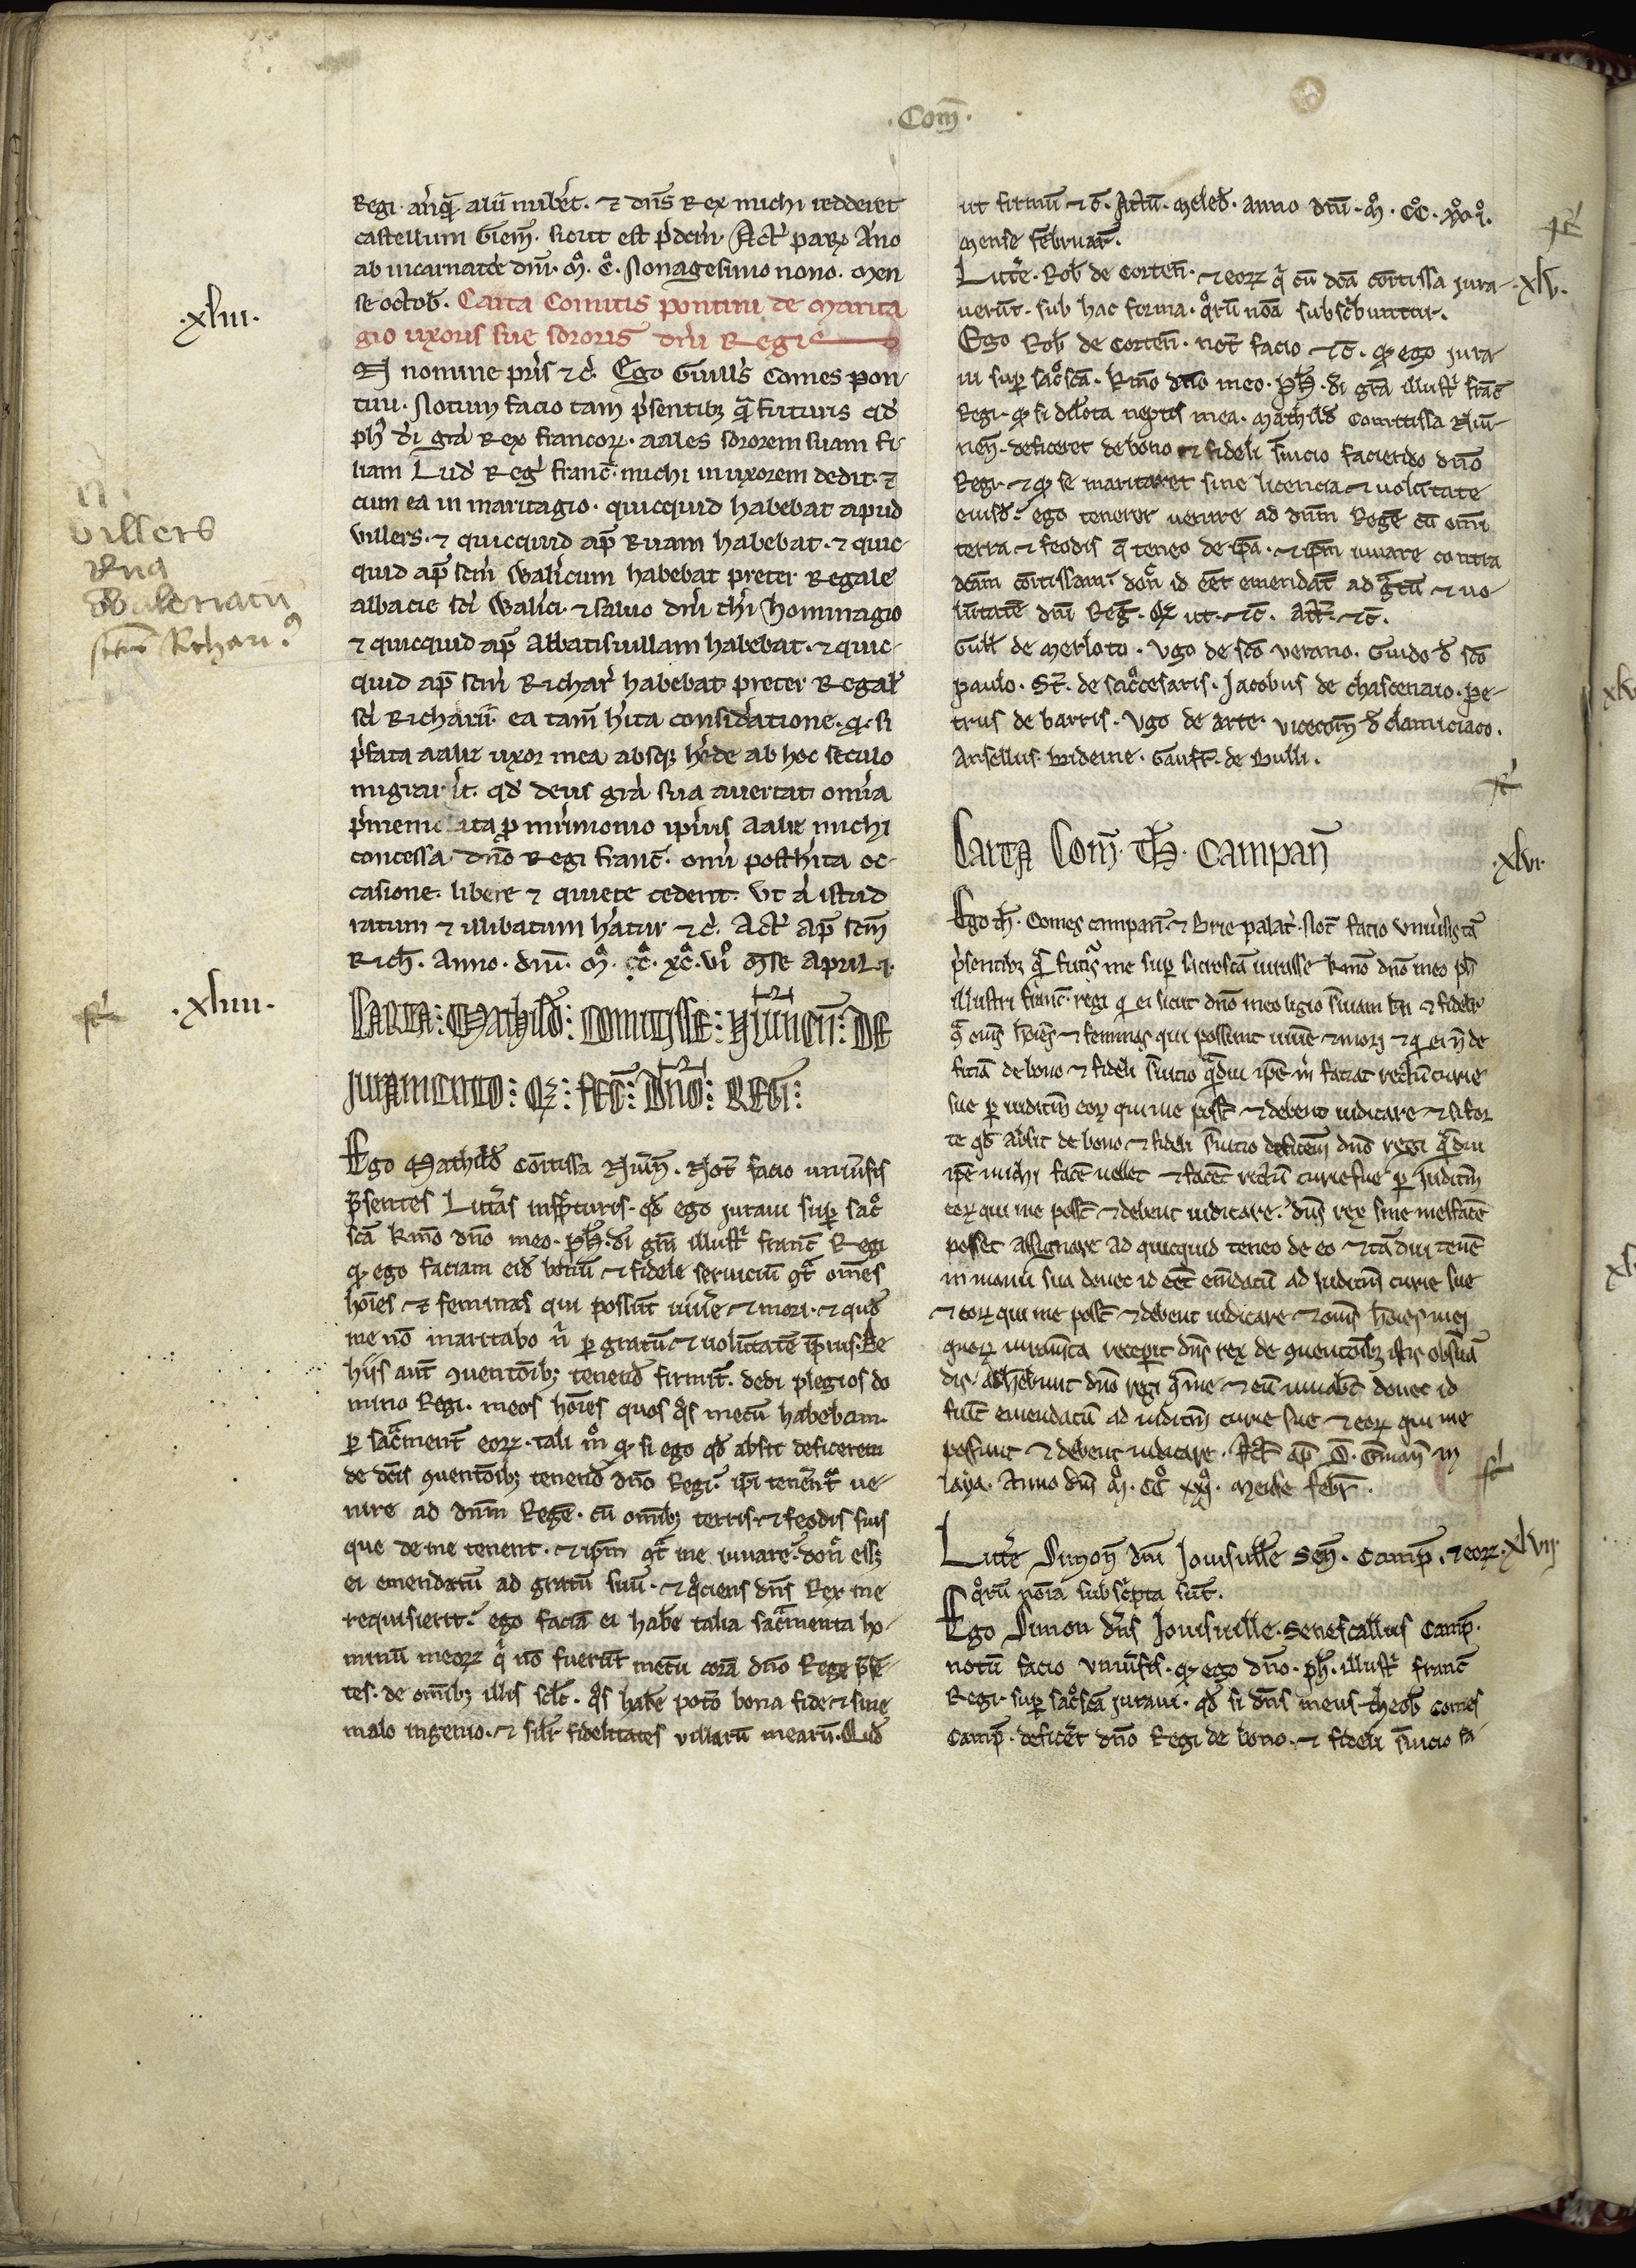 ·Com̃·
Regi· anq̃ᷓ aliũ nubẽt· ⁊ dñs Rex michi redderet
castellum Giem̃· sicut est p̃dcm̃· Act̃ parꝭ Ãno
ab incarnatõe dñi· m̊· c̊· Nonagesimo nono· men
se octob̃· Carta Comitis pontiui de marita
gio uxoris sue sororis dñi Regis
·xliii·
N nomine pr̃is ⁊ c̃· Ego Guill̃s Comes pon-
tiui· Notum facio tam p̃sentibꝫ q̃ᷓ futuris qd̃
ph̃ di gr̃a Rex francoꝝ· aales sororem suam fi-
liam Lud̃ Reg̃ franc̃· michi in uxorem dedit· ⁊
cum ea in maritagio· quicquid habebat apud
villers· ⁊ quicquid ap̃ Ruam habebat· ⁊ quic-
quid ap̃ scm̃ Walicum habebat preter Regale
abbacie sci Walici· ⁊ saluo dñi chi hominagio
⁊ quicquid ap̃ Abbatisuillam habebat· ⁊ quic-
quid ap̃ scm̃ Richar̃ habebat preter Regal̃
sci Richarii· ea tam̃ h̃ita considatione· ꝙ· si
p̃fata aalis uxor mea absqꝫ h̃ede ab hoc seculo
migrau it· qd̃ deus gr̃a sua auertat om̃ia
p̃mem ata ꝓ m̃rimonio ip̃ius Aalis michi
concessa dño Regi franc̃· om̃i posth̃ita oc-
casione· libere ⁊ quiete cedent· Vt ã istud
ratum ⁊ illibatum h̃atur ⁊ c̃· Act̃ ap̃ scm̃
Rich̃· Anno· dñi· m̊· c̊· xc̊· v̊· m̃se april·
n·
villers
Rua
Walericũ
scm̃ Richariũ
·xliiii·
Carta: Mathild̃: Comitisse: Niuen̄: De
iuramento: Qꝫ: fec̃: Dño: Regi:
Ego Mathild̃ com̃tissa Niuñ· Not̃ facio uniu̾sis
p̃sentes Litt̃as insp̃cturis· qd̃ ego iuraui sup̃ sac̊
scã kmõ dño meo· ph̃· di gr̃a illust̃ franc̃ Regi
ꝙ ego faciam eid̃ bonũ ⁊ fidele seruiciũ ꝯt̃ omẽs
hoĩes ⁊ feminas qui possũt uiuẽ ⁊ mori· ⁊ quod
me nõ maritabo ñ per gratũ ⁊ uolũtatẽ ip̃ius· De
hiis aut̃ ꝯuentõibꝫ tenend̃ firmit̃· dedi plegios do
mino Regi· meos hoĩes quos q̃s mecũ habebam·
p̲ sac̃ment̃ eoꝝ· tali m̊ ꝙ si ego qd̃ absit deficerem
de dc̃is ꝯuentõibꝫ tenend̃ dño Regi· ip̃i tenẽr̃t ue-
nire ad dñm Regẽ· cũ om̃ibꝫ terris ⁊ feodis suis
que de me tenent· ⁊ ip̃m ꝯt̃ me iuuare· don̾ eẽt
ei emendatũ ad gratũ suũ· ⁊ q̊ciens dñs Rex me
requisierit· ego faciã ei hab̃e talia sac̃menta ho-
minũ meoꝝ q̇ nõ fuer̃t mecũ corã dño Rege p̃sẽ-
tes· de om̃ibꝫ illis scl̃t· q̃s hab̃e potõ bona fide ⁊ sine
malo ingenio· ⁊ sil̃r fidelitates villarũ mearũ· Quod
ut firmũ ⁊ c̃· Actũ· meled̃· anno dñi· m̊· cc̊· xx̊· i̊·
mense februar̃·
Litt̃e· Rob̃ de Corten̄· ⁊ eoꝝ q̇ cũ dc̃a com̃tissa iura-
·xlv·
uerũt· sub hac forma· q̊rũ noĩa subsc̃buntur·
Ego Rob̃ de Corten̄· not̃ facio ⁊ c̃· ꝙ ego iura
ui sup̃ sac̊scã· kmõ dño meo· ph̃· di gr̃a illust̃ franc̃
Regi· ꝙ si dil̃cta neptis mea· mathild̃ comitissa Niũ-
nen̄· deficeret de bono ⁊ fideli s̃uicio faciendo dño
Regi· ⁊ ꝙ se maritaret sine licencia ⁊ uolũtate
eiusd̃· ego tenerer uenire ad dñm Regẽ cũ om̃i
terra ⁊ feodis q̃ teneo de ip̃a· ⁊ ip̃m iuuare contra
dc̃am com̃tissam· don̾ id eẽt emendat̃ ad g̃tũ ⁊ uo-
lũtatẽ dñi Reg̃· Qꝫ ut· ⁊ c̃· Act̃· ⁊ c̃·
Guill̃ de merloto· Vgo de sc̃o verano· Guido d̃ sc̃o
paulo· St̃· de sac̊cesaris· Jacobus de chascenaio· pe-
trus de barris· Vgo de arte· vicecom̃ d̃ clamiciaco·
Ansellus bridenne· Gauft̃· de Bulli·
Carta Com̃· Th̃· Campan̄
·xlvi·
Ego th̃· Comes campan̄ ⁊ Brie palat̃· Not̃ facio vniu̾sis tã
p̃sentibꝫ q̃ᷓ futis̃ me sup̃ sacrosc̃a iurasse kmõ dño meo ph̃
illustri franc̃· regi ꝙ ei sicut dño meo ligio s̃uiam bñ ⁊ fidelit̃
ꝯ̃ om̃s hoĩes ⁊ feminas qui possunt uiue̾ ⁊ mori ⁊ ꝙ ei ñ de
ficiã de bono ⁊ fideli s̃uicio q̃ᷓdiu ip̃e m̃ faciat rectũ curie
sue p̲ iudiciũ eoꝝ qui me possũt ⁊ debent iudicare ⁊ si for
te qd̃ absit de bono ⁊ fideli s̃uicio deficerẽ dño regi q̃ᷓdiu
ip̃e michi fac̃e uellet ⁊ fac̃et rectũ curie sue p̲ iudiciũ
eoꝝ qui me possũt ⁊ debent iudicare· dñs rex sine mesfac̃e
posset assignare ad quicquid teneo de eo ⁊ tã diu tenẽ
in manu sua donec id eẽt em̃datũ ad iudiciũ curie sue
⁊ eoꝝ qui me possũt ⁊ debent iudicare ⁊ om̃s hoĩes mei
quoꝝ iuram̃ta recepit dñs rex de ꝯuentõibꝫ istis obs̃uã
dis· adh̃ebunt dño regi ꝯ̃ me ⁊ eũ iuuab̃t donec id
fuẽt emendatũ ad iudiciũ curie sue ⁊ eoꝝ qui me
possunt ⁊ debent iudicare· Act̃ ap̃ S̃· G̃man̄ in
laya· Anno dñi m̊· cc̊ xxi̊· mense febr̃·
Litt̃e Simon̄ dñi Jouisuille Sen̄· Camp̃· ⁊ eoꝝ
·xlvii·
q̊rũ noĩa subsc̃pta sũt·
Ego Simon dñs Jouisuille· Senescallus Camp̃·
notũ facio vniu̾sis· ꝙ ego dño· ph̃· illust̃ franc̃
Regi· sup̃ sac̊scã iuraui· qd̃ si dñs meus theob̃ comes
Camp̃· deficẽt dño Regi de bono· ⁊ fideli s̃uicio fa-